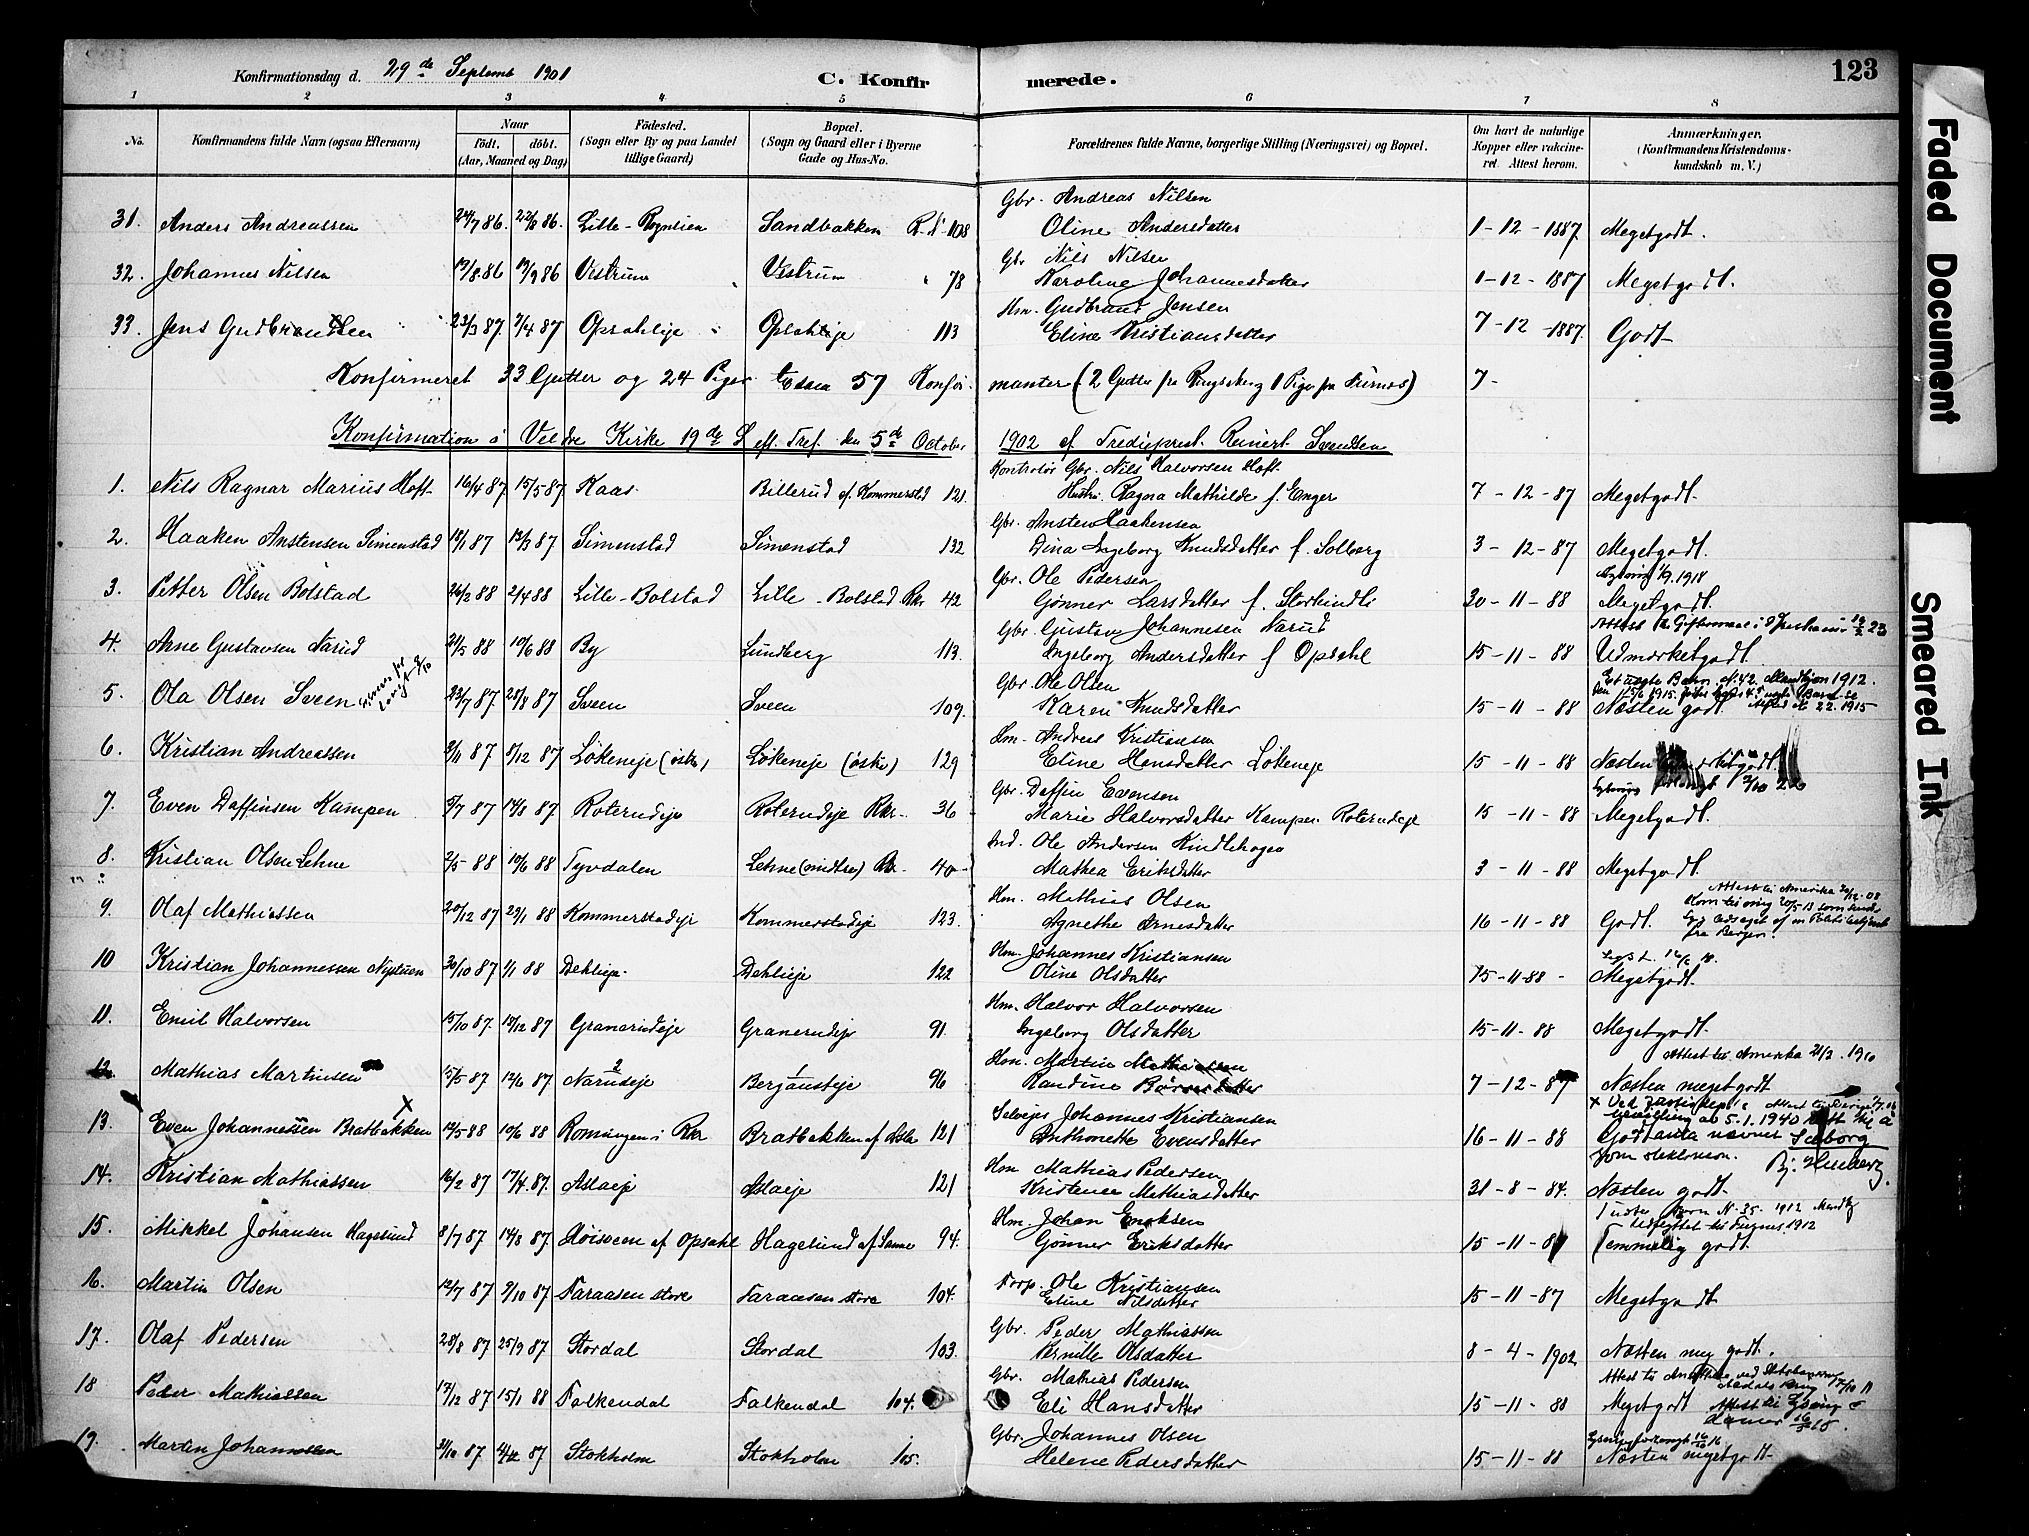 Konfirmationsdag d. 29de Septemb 1901 C. Konfirmerede. 123
1 2 3 4 5 6 7 8
No. Konfirmandens fulde Navn (ogsaa Efternavn) Naar födt. döbt. (Aar, Maaned og Dag) Födested. (Sogn eller By og paa Landet tillige Gaard) Bopæl. (Sogn og Gaard eller i Byerne Gade og Hus-No. Forældrenes fulde Navne, borgerlige Stilling (Næringsvei) og Bopæl. Om havt de naturlige Kopper eller vakcineret. Attest herom. Anmærkninger. (Konfirmandens Kristendomskundskab m. V.)
Gbr. Andreas Nilsen
31. Anders Andreassen 24/7 86. 22/8 86. Lille-Rognlien Sandbakken 108 Oline Andersdatter 1-12-1887 Megetgodt.
Gbr Nils Nilsen
32. Johannes Nilsen 13/8.86 19/9 86 Vestrum Vestrum 78 Karoline Johannesdatter 1-12-1887 Megetgodt.
Hm. Gudbrand Jensen
33. Jens Gudbrandsen 23/3 87. 7/4 87 Opsahleje Opsahleje 113 Eline Kristiansdatter 7-12-1887. Godt
Konfirmeret 33 Gutter og 24 Piger tilsam 57 Konfirmanter (2 Gutter fra Ringsaker 1 Pige fra Furnes) 7-
Konfirmation i Veldre Kirke 19de S eft. Tref. den 5de October 1902 af Tredieprest Reinert Svendsen
Kontrolör Gbr. Nils Halvorsen Hoft
1. Nils Ragnar Marius Hoft 16/4 87. 15/5 87 Kaas Billerud af Kommerstad 121 Hustru Ragna Mathilde f. Enger 7-12-87 Megetgodt.
Gbr. Ansten Haakensen
2. Haaken Anstensen Simenstad 18/1 87 13/3 87 Simenstad Simenstad 132 Dina Ingeborg Knudsdatter f. Solberg 3-12-87 Megetgodt.
Gbr. Ole Pedersen 1/9.1918
3. Petter Olsen Bolstad 26/2 88 2/4 88 Lille-Bolstad Lille-Bolstad Rkr 42 Gönner Larsdatter f. 30-11-88 Megetgodt.
Gbr. Gustav Johannesen Narud Attest
4. Arne Gustavsen Narud 21/5 88 10/6 88 By Lundberg 113. Ingeborg Andersdatter f Opsahl 15-11-88 Udmerketgodt
Gbr. Ole Olsen Et uægte Barn N. 42. Mandkjön 1912.
5. Ola Olsen Sveen 23/7 87 28/8 87 Sveen Sveen 109. Karen Knudsdatter 15-11-88 Næsten godt. 22. 1915
Hm. Andreas Kristiansen
6. Kristian Andreassen 2/11 87 8/12 87 Lökeneje (östre) Lökeneje (östre) 129 Eline Hansdatter Lökeneje 15-11-88 Næsten
Gbr. Daffin Evensen
7. Even Daffinsen Kampen 5/7 87 14/8 87 Roterudeje Roterudeje Rkr. 36 Marie Halvorsdatter Kampen Roterudeje 15-11-88 Megetgodt.
Ind. Ole Andersen Kindlehagen
8. Kristian Olsen Lehne 2/5 88 10/6 88 Tyvdalen Lehne (midtre) Rkr. 40 Mathea Eriksdatter 3-11-88 Megetgodt.
Hm. Mathias Olsen Attest til Amerika 08
9. Olaf Mathiassen 20/12 87 29/1 88 Kommerstadeje Kommerstadeje 123. Agnethe Arnesdatter 16-11-88 Godt. fra Bergen.
Hm. Johannes Kristiansen
10 Kristian Johannessen Nystuen 30/10 87 1/1 88 Dehlieje Dehlieje 122 Oline Olsdatter 15-11-88 Megetgodt.
Hm. Halvor Halvorsen
11. Emil Halvorsen 15/10 87. 19/12 87 Granerudeje Granerudeje 91. Ingeborg Olsdatter 15-11-88 Megetgodt.
Hm. Martin Mathiassen Attest til Amerika 21/3. 1910
12. Mathias Martinsen 15/5 87 12/6 87 Narudeje Bergausteje 96 Randine 7-12-87 Næsten megetgodt
Selvejer Johannes Kristiansen × Ved
13. Even Johannessen Bratbakken × 12/5 88 10/6 88 Romungen i Rkr Bratbakken af Asla 121 Anthonette Evensdatter 16-11-88 Godt 5.1.1940 navnet Seeborg
Hm Mathias Pedersen som slektsnavn.
14. Kristian Mathiassen 16/2 87 17/4 87. Aslaeje Aslaeje 121 Kristence Mathiasdatter 31-8-84. Næsten godt.
Hm. Johan Eriksen 1 uægte Barn N. 35. 1912 Udflyttet til Furnes 1912
15. Mikkel Johansen Hagelund 8/7 87 14/8 87. af Opsahl Hagelund af Sanne 94. Gönner Eriksdatter 15-11-8 Temmelig godt.
Forp. Ole Kristiansen
16. Martin Olsen 12/7 87 9/10 87 Faraasen store Faraasen store 104. Eline Nilsdatter 15-11-87 Megetgodt
Gbr. Peder Mathiassen
17. Olaf Pedersen 28/8 87 25/9 87 Stordal Stordal 103. Pernille Olsdatter 8-4-1902 Næsten meg godt.
Gbr. Mathias Pedersen
18 Peder Mathiassen 17/12 87 15/1 88 Falkendal Falkendal 104. Eli Hansdatter 15-11-88 Megetgodt
Gbr. Johannes Olsen
19. Martin Johannessen 31/10 87 4/12 87 Stokholm Stokholm 105. Helene Pedersdatter 15-11-88 Næsten megetgodt
Faded Document
Smeared Ink